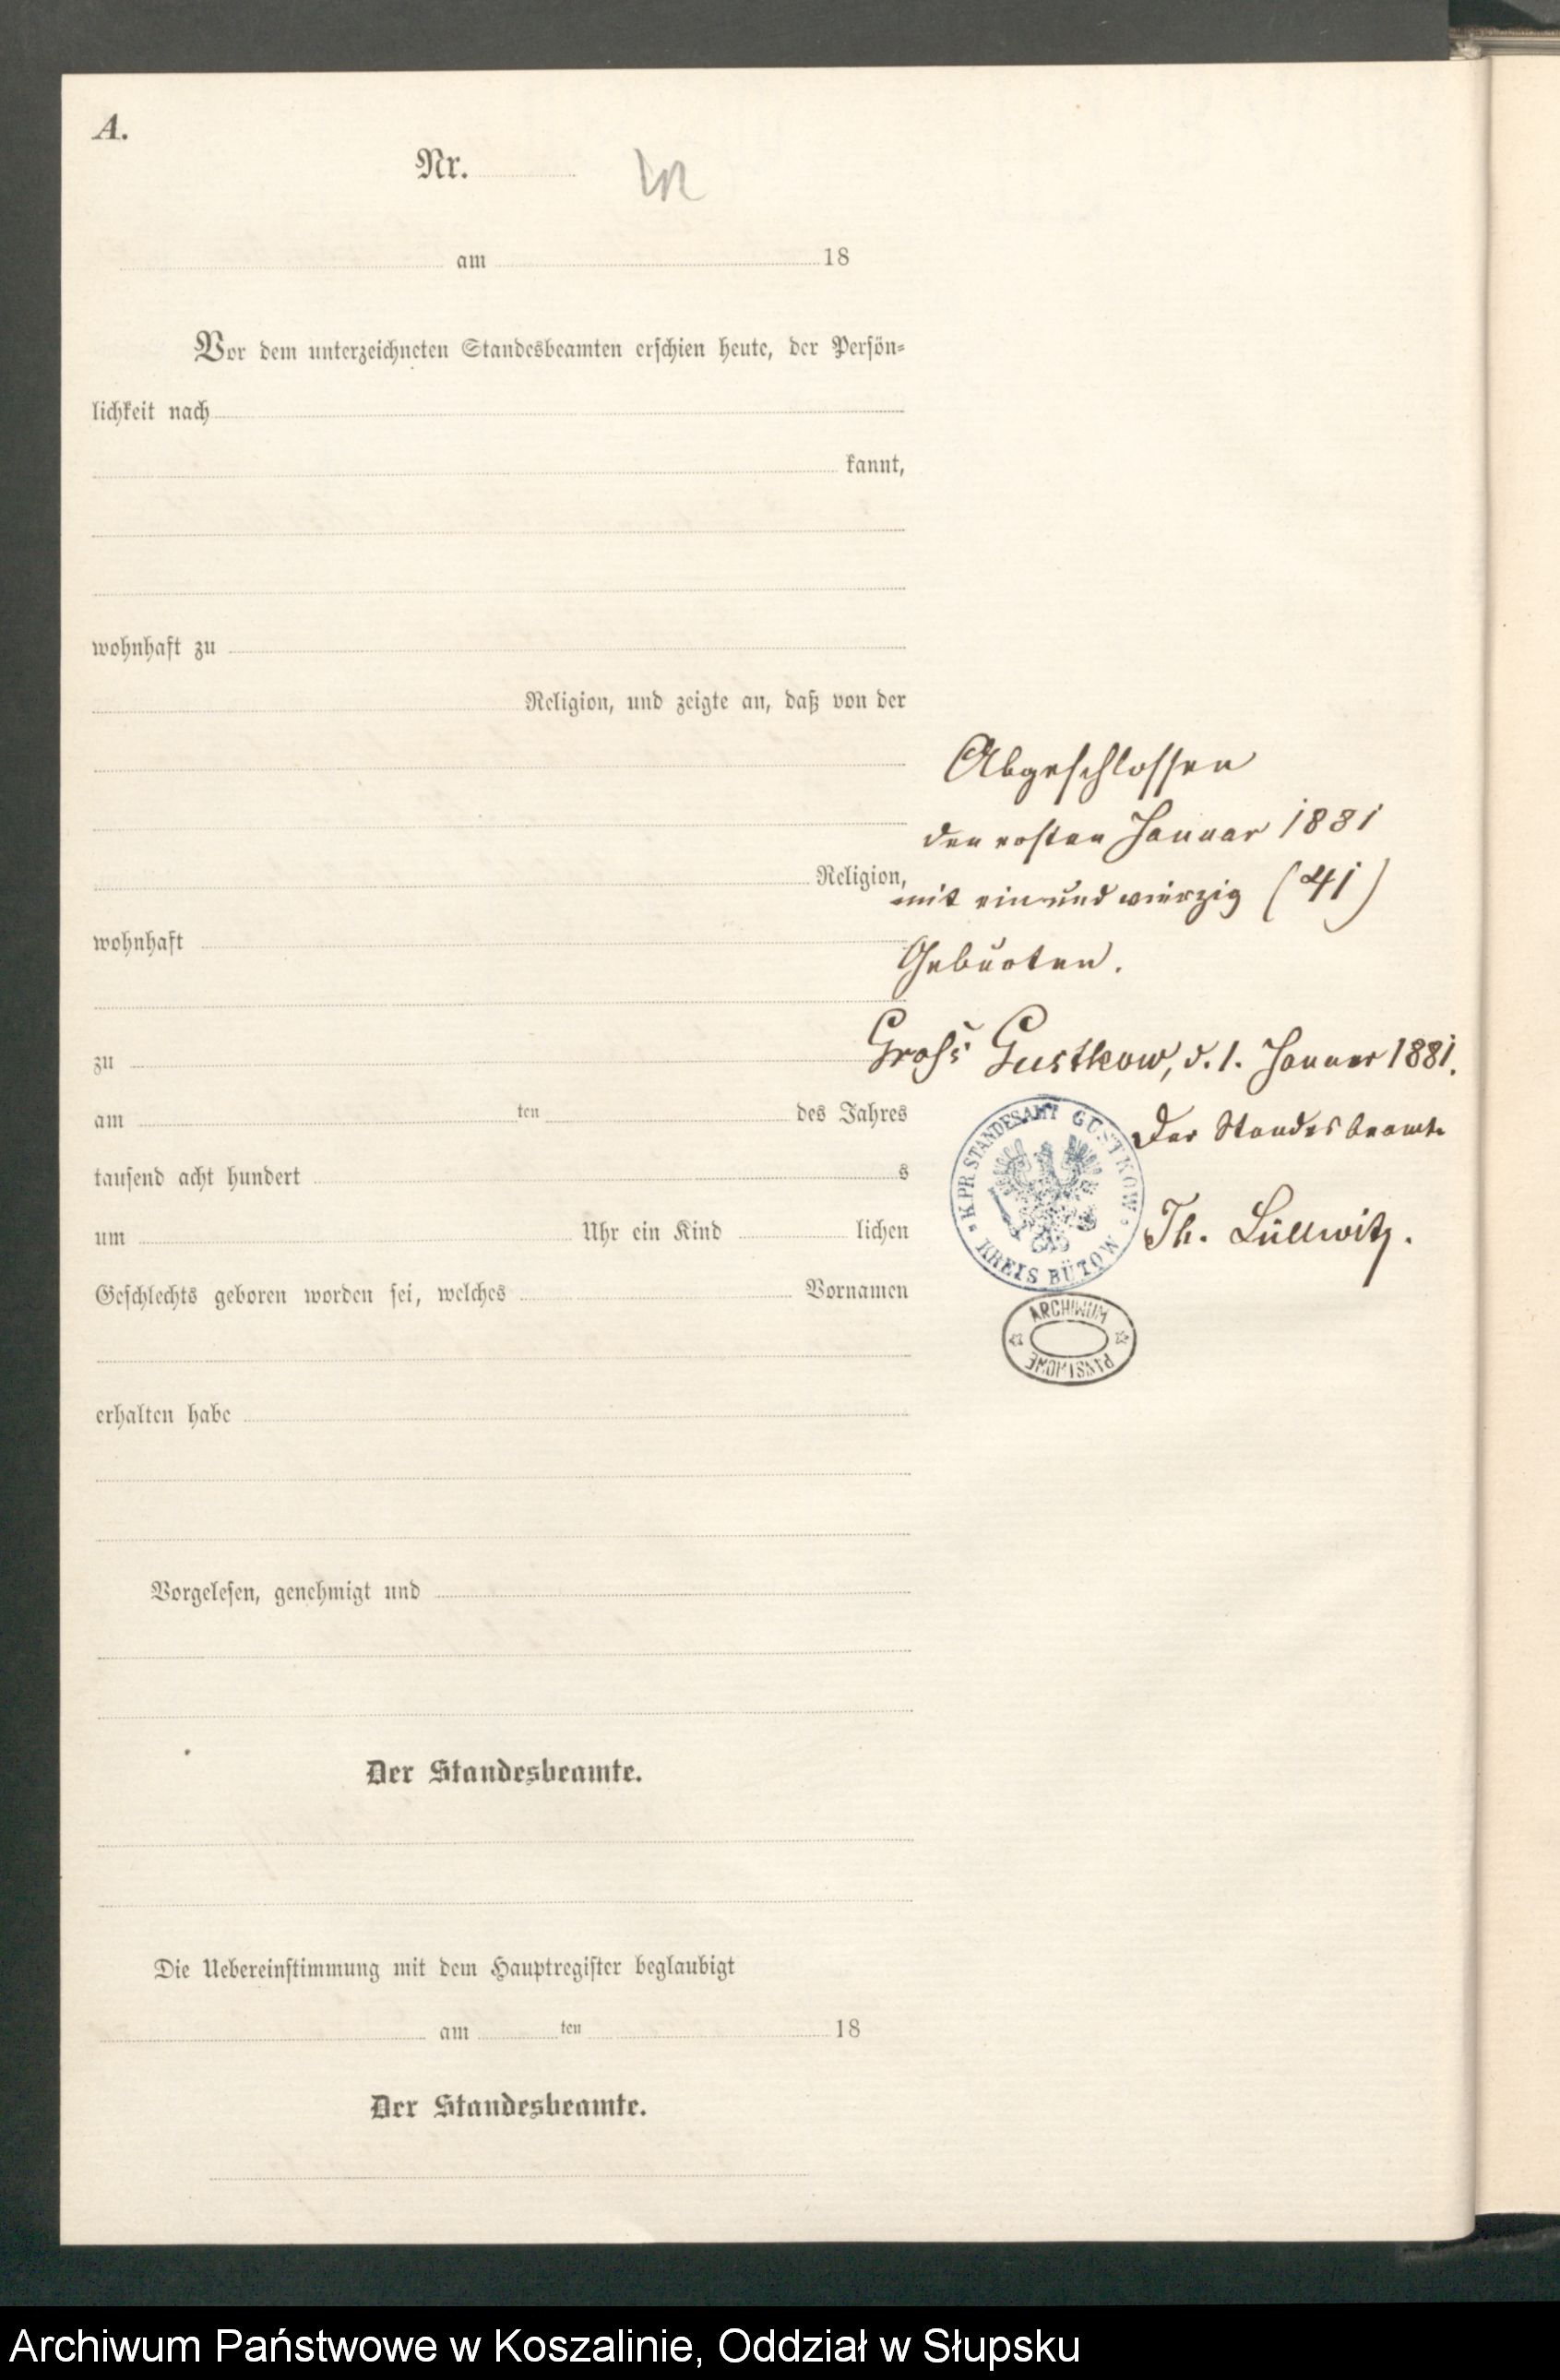 A.
Nr.
am 18
Vor dem unterzeichneten Standesbeamten erschien heute, der Persön-
lichkeit nach
kannt,
wohnhaft zu
Religion, und zeigte an, daß von der
Religion,
wohnhaft
zu
am ten des Jahres
tausend acht hundert s
um Uhr ein Kind lichen
Geschlechts geboren worden sei, welches Vornamen
erhalten habe
Vorgelesen, genehmigt und
Der Standesbeamte.
Die Uebereinstimmung mit dem Hauptregister beglaubigt
am ten 18
Der Standesbeamte.
Abgeschlossen
den ersten Januar 1881
mit ein und vierzig (41)
Geburten.
Groß Gustkow, d. 1. Januar 1881.
Der Standesbeamte
Th. Lüllwitz.
K. PR. STANDESAMT GUSTKOW
KREIS BÜTOW
ARCHIWUM
PAŃSTWOWE
Archiwum Państwowe w Koszalinie, Oddział w Słupsku